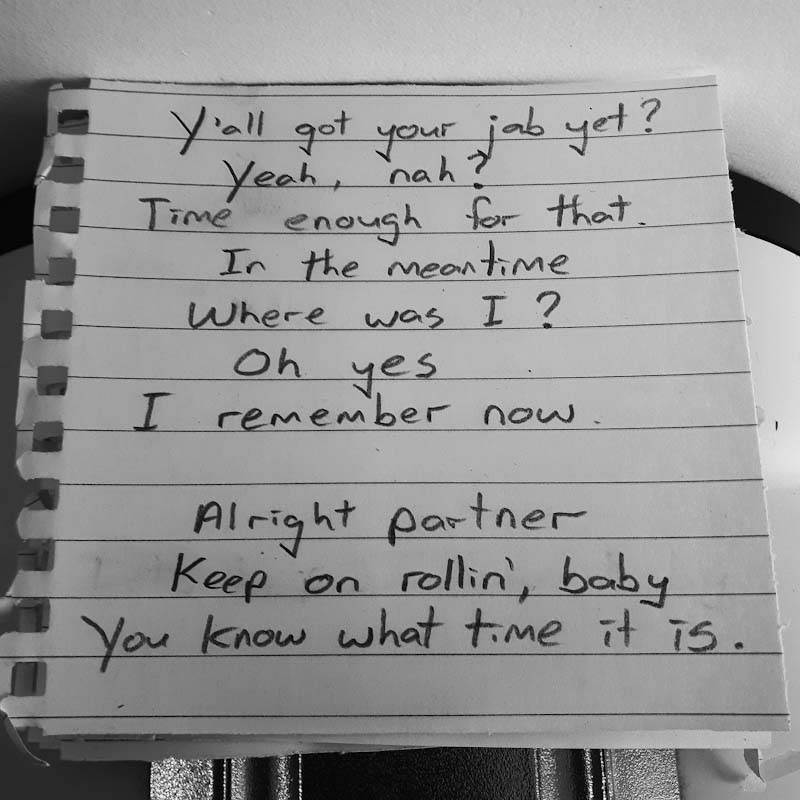 Y'all got your jab yet?
Yeah, nah?
Time enough for that.
In the meantime
Where was I ?
Oh yes
I remember now.
Alright partner
Keep on rollin', baby
You know what time it is.